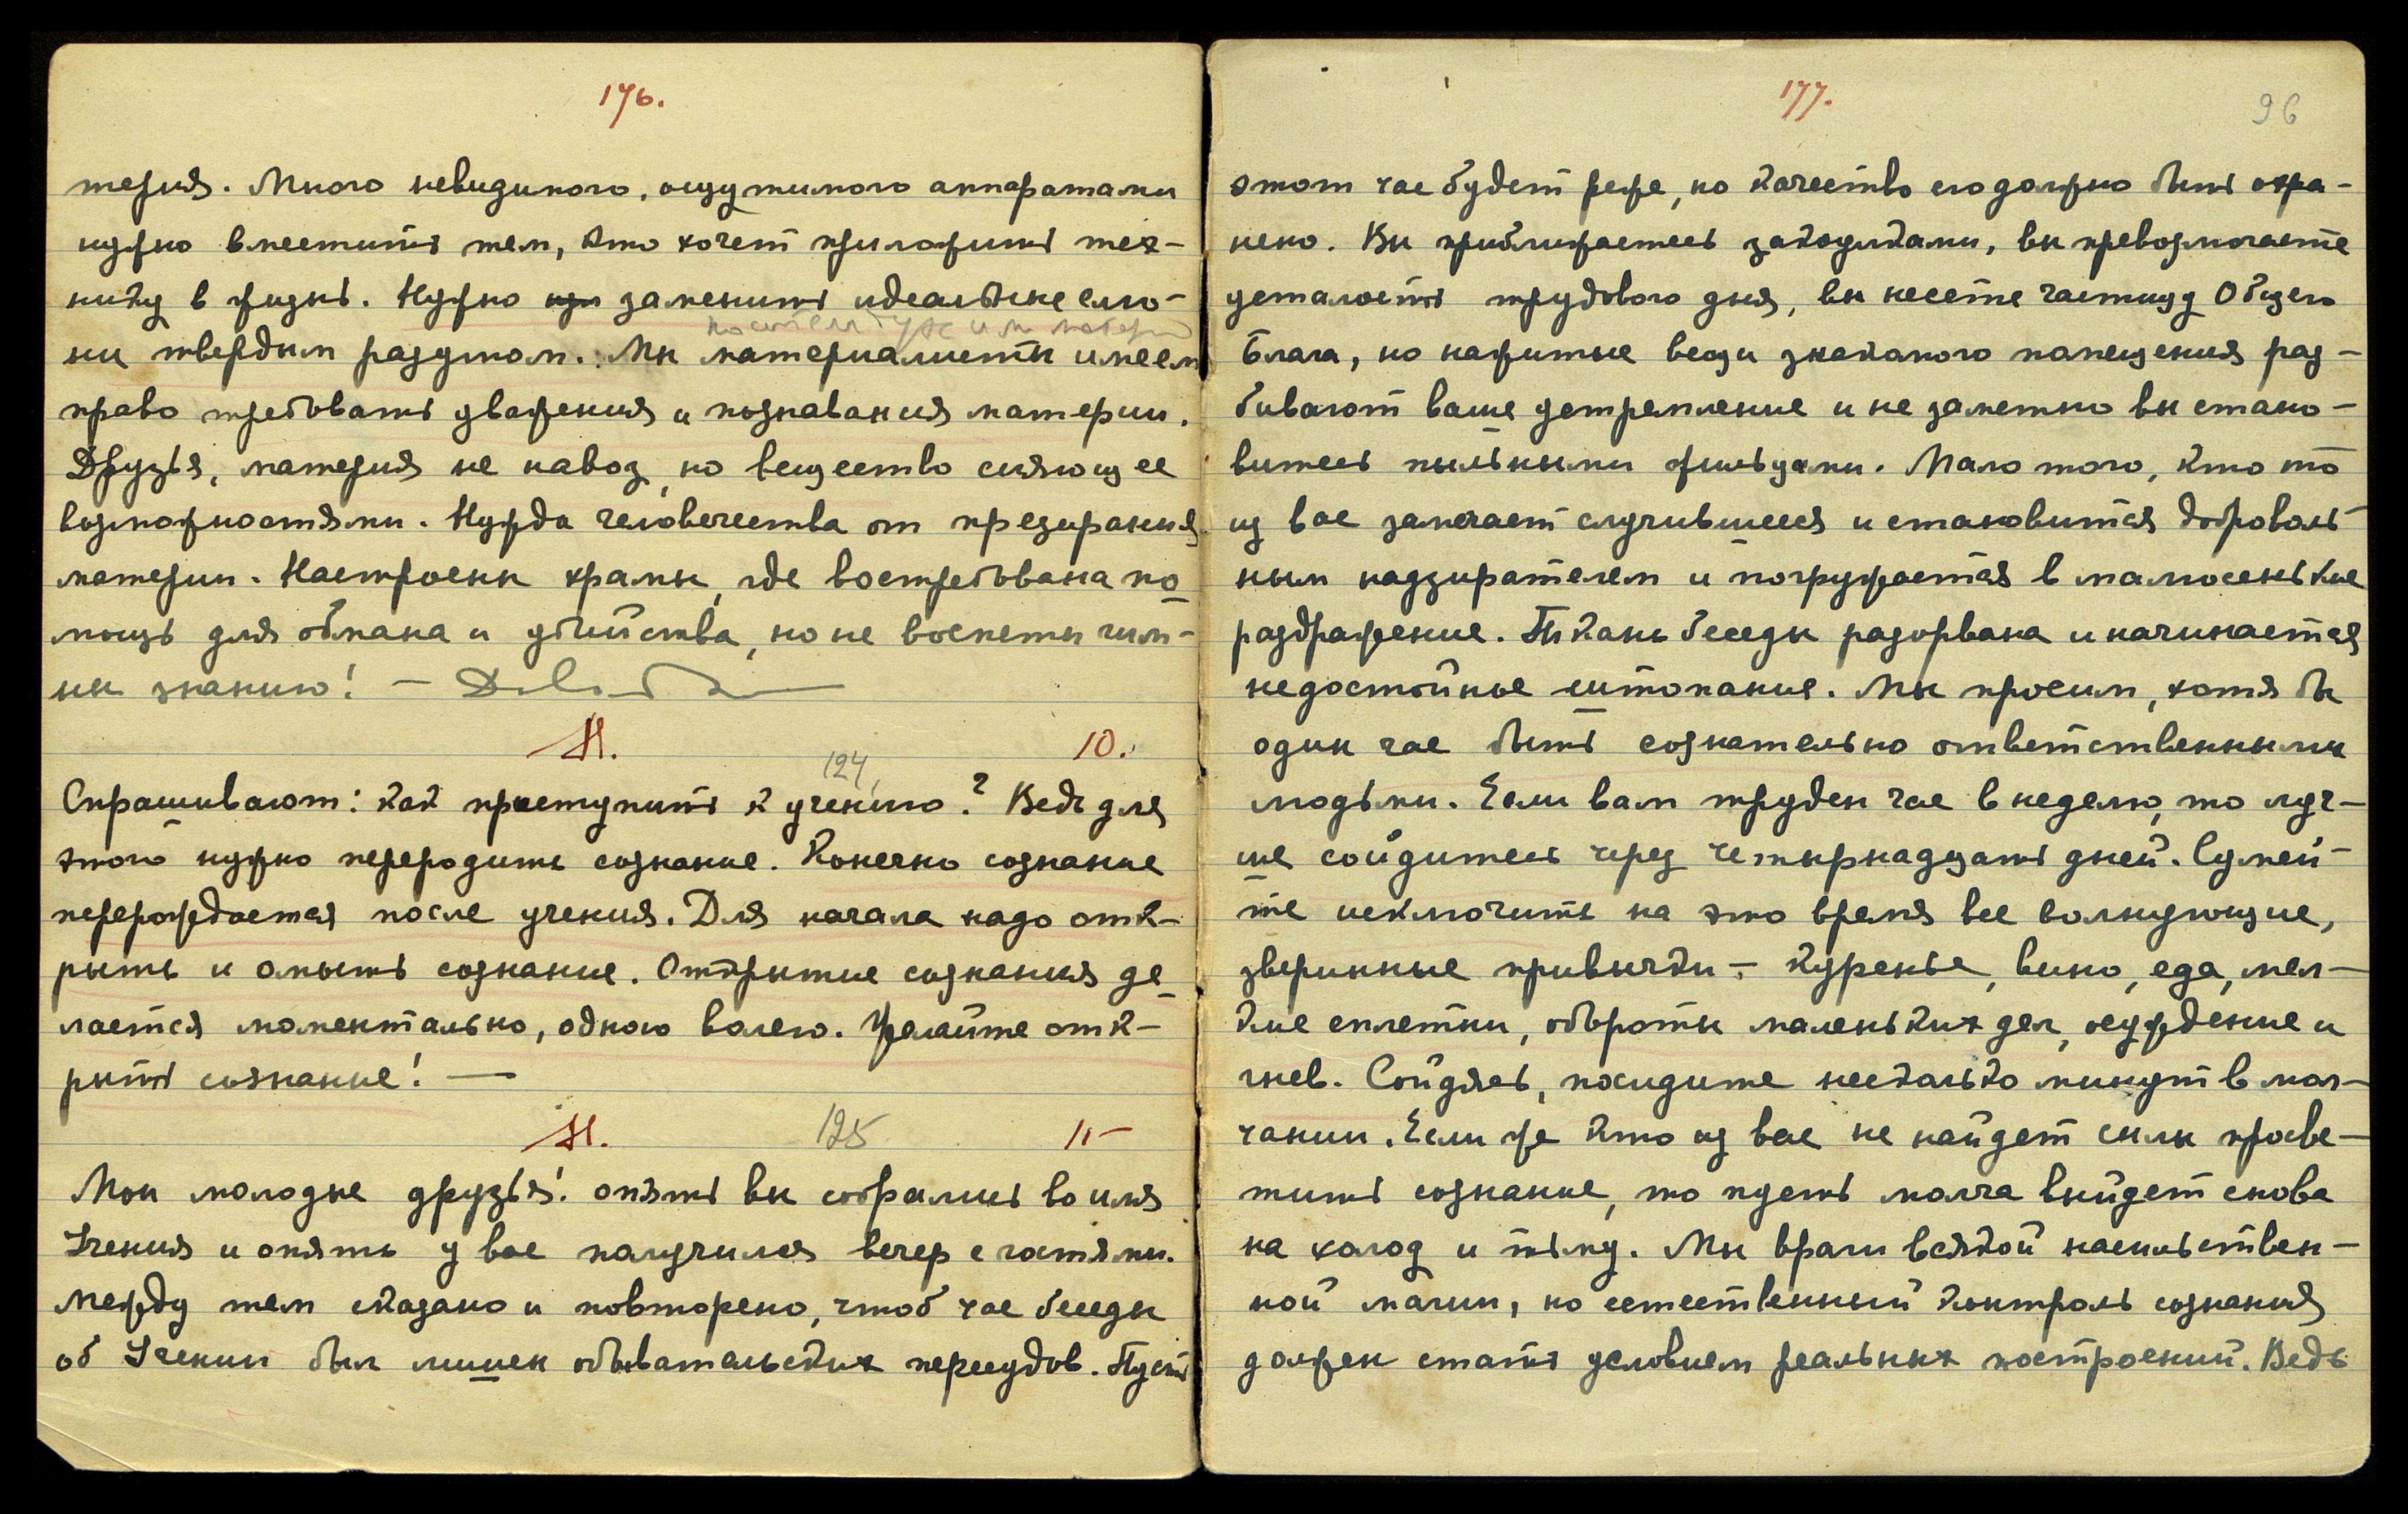 176.
терия. Много невидимого, ощутимого аппаратами
нужно вместить тем, кто хочет приложить тех-
нику в жизнь. Нужно заменить идеальные сло-
ни твердым разумом. Мы материалисты имеем
право требовать уважения и познавания материи.
Друзья, материя не навоз, но вещество сияющее
возможностями. Нужда человечества от презирания
материи. Настроены храмы, где востребована по-
мощь для обмана и убийства, но не воспеты гим-
ны знанию! —
М. 10.
124.
Спрашивают: как преступить к учению? Ведь для
этого нужно переродить сознание. Конечно сознание
перерождается после учения. Для начала надо отк-
рыть и омыть сознание. Открытие сознания де-
лается моментально, одною волею. Желайте отк-
рыть сознание! —
М. 125 11-
Мои молодые друзья! опять вы собрались во имя
Учения и опять у вас получился вечер с гостями.
Между тем сказано и повторено, чтоб час беседы
об Учении был лишен обывательских пересудов. Пусть
177.
96
этот час будет реже, но качество его должно быть охра-
нено. Вы приближаетесь закоулками, вы превозмогаете
усталость трудового дня, вы несете частицу Общего
Блага, но нажитые вещи знакомого помещения раз-
бивают ваше устремление и не заметно вы стано-
витесь пыльными жильцами. Мало того, кто то
из вас замечает случившееся и становится доброволь-
ным надзирателем и погружается в малюсенькие
раздражение. Ткань беседы разорвана и начинается
недостойные штопание. Мы просим, хотя бы
один час быть сознательно ответственными
людьми. Если вам труден час в неделю, то луч-
ше сойдитесь через четырнадцать дней. Сумей-
те исключить на это время все волнующие,
звериные привычки — куренье, вино, еда, мел-
кие сплетни, обороты маленьких дел, осуждение и
гнев. Сойдясь, посидите несколько минут в мол-
чании. Если же кто из вас не найдет силы просве-
тить сознание, то пусть молча выйдет снова
на холод и тьму. Мы враги всякой насильствен-
ной магии, но естественный контроль сознания
должен стать условием реальных построений. Ведь